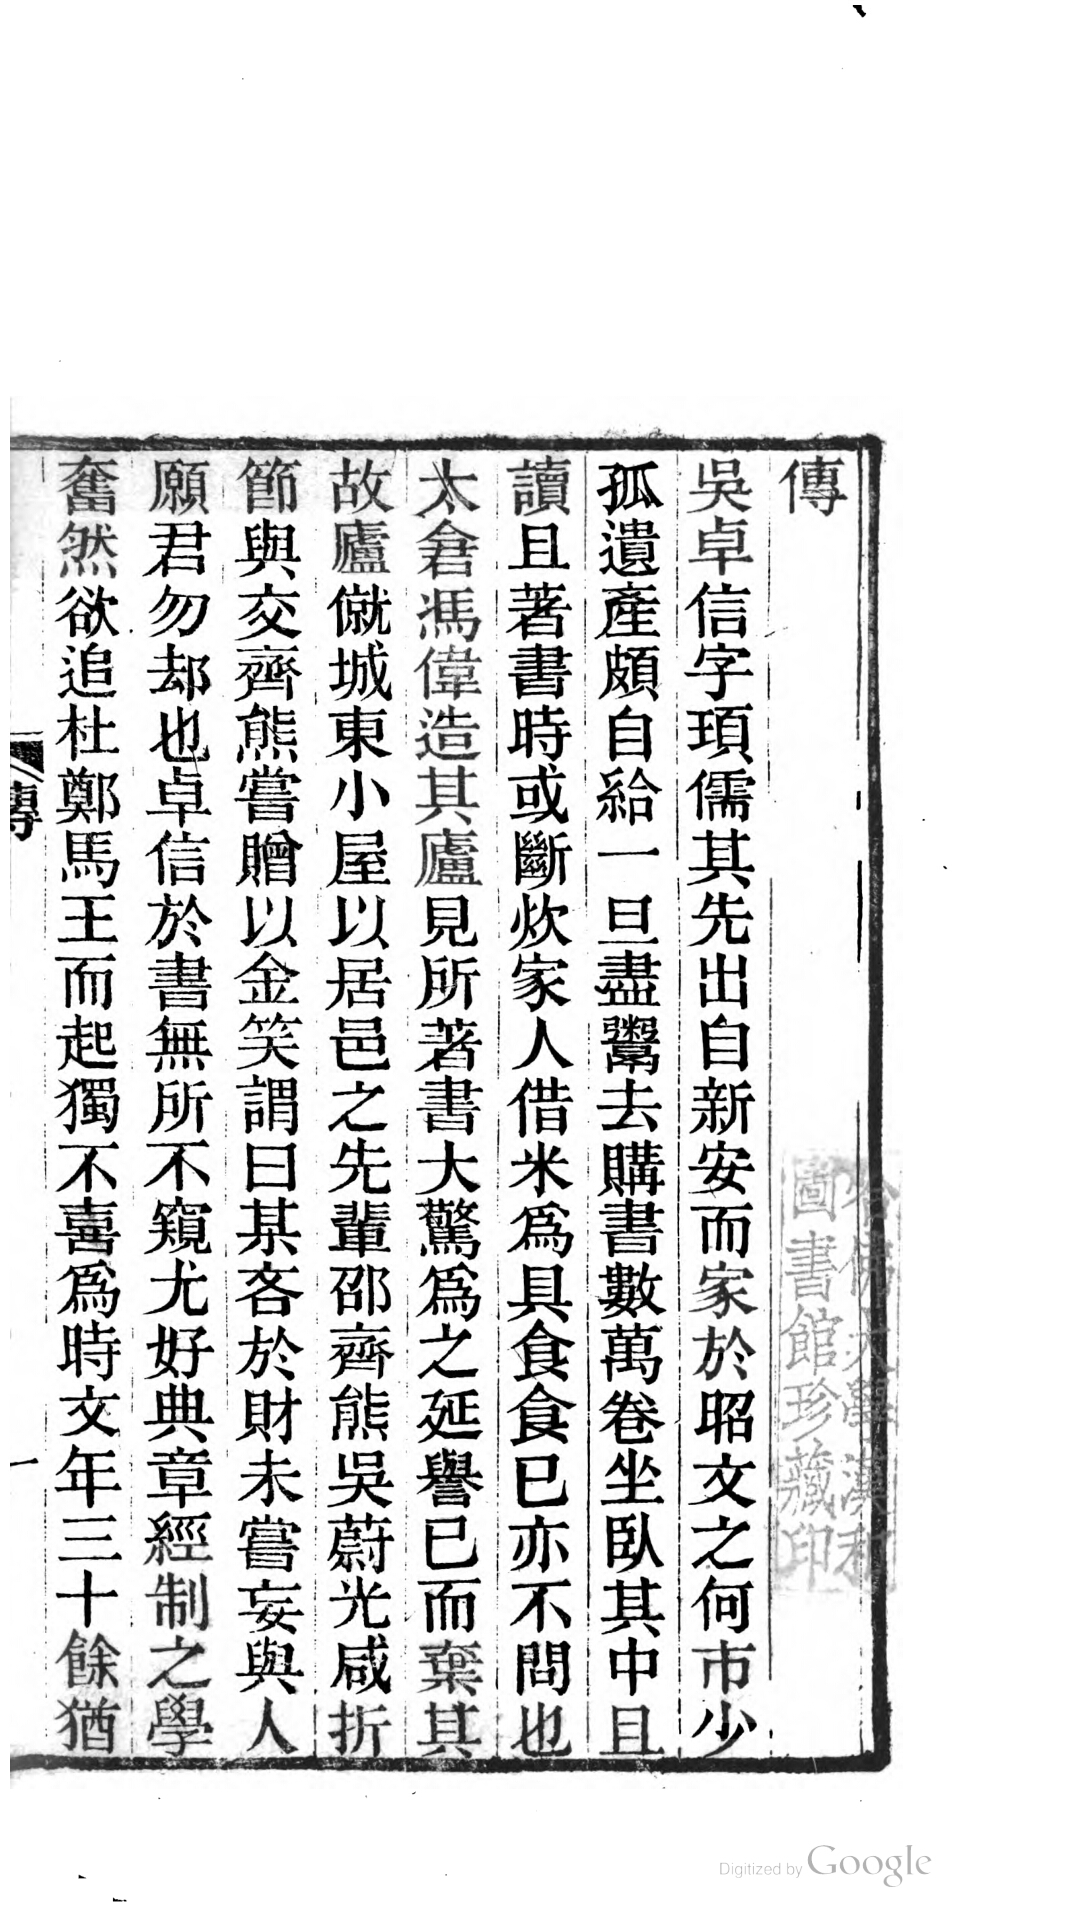 傳
吳卓信字頊儒其先出自新安而家於昭文之何市少
孤遺產頗自給一旦盡鬻去購書數萬卷坐臥其中且
讀且著書時或斷炊家人借米爲具食食已亦不問也
太倉馮偉造其廬見所著書大驚爲之延譽已而棄其
故廬僦城東小屋以居邑之先輩邵齊熊吳蔚光咸折
節與交齊熊嘗贈以金笑謂曰某吝於財未嘗妄與人
願君勿却也卓信於書無所不窺尤好典章經制之學
奮然欲追杜鄭馬王而起獨不喜爲時文年三十餘猶
傳
一
哈佛大學漢和
圖書館珍藏印
Digitized by Google